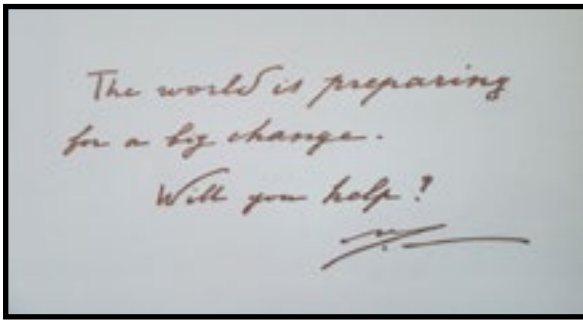 The world is preparing
for a big change.
Will you help?